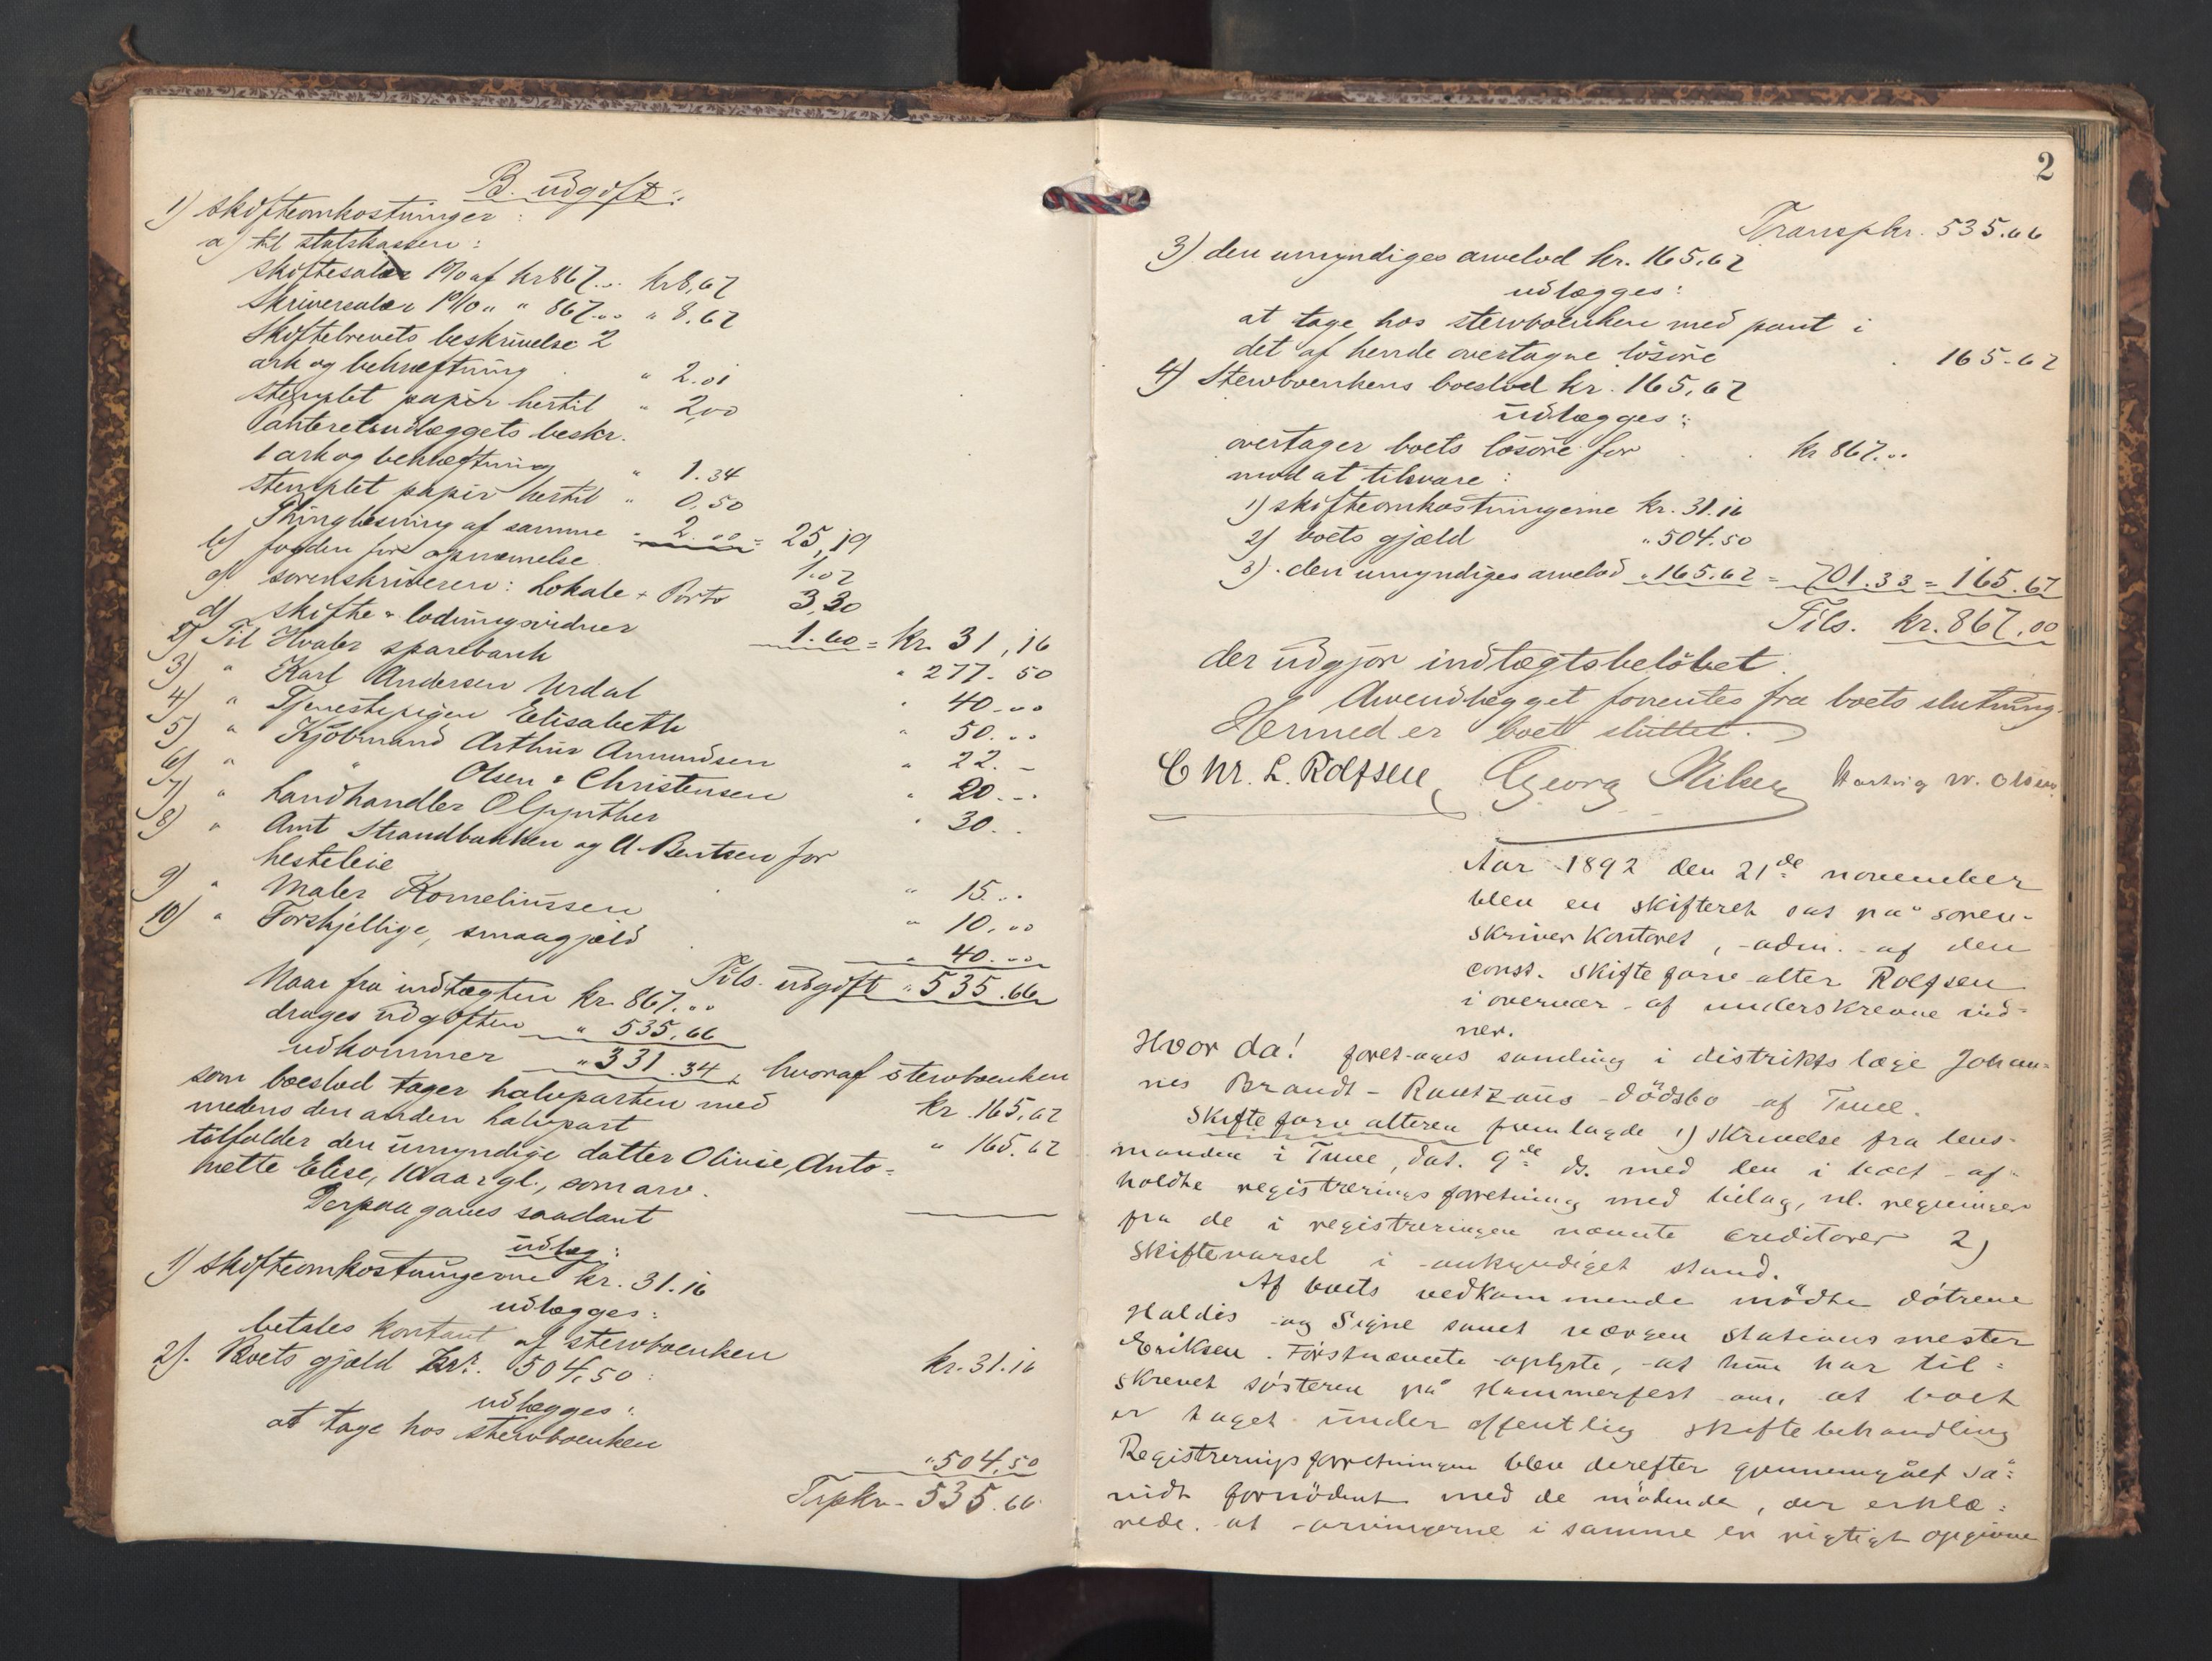 B. udgift:
1) skifteomkostninger:
a) til statskassen:
skiftesalær 1% af kr 867... kr 8,67
skriversalær 1% " " 867... " 8.67
skiftebrevets beskrivelse 2
ark og bekræftning " 2.01
stemplet papir hertil " 2,00
Panteretsudlæggets beskr.
1 ark og bekræftning " 1.34
stemplet papir hertil " 0,50
Thinglæsning af samme " 2.00 = 25,19
b) fogden for opnævnelse 1.07
c) sorenskriveren: Lokale + Porto 3,30
d) skifte & lodningsvidner 1.60 = kr. 31,16
2) Til Hvaler sparebank " 277.50
3) " Karl Andersen Urdal " 40...
4) " Tjenestepigen Elisabeth " 50...
5) " Kjøbmand Arthur Amundsen " 22. –
6) " " Olsen & Christensen " 20...
7) " Landhandler O Gynther " 30..
8) " Amt Strandbakken og A. Bentsen for
hesteleie " 15...
9) " Maler Korneliussen " 10,00
10) " Forskjellige, smaagjæld " 40...
Tils. udgift " 535.66
Naar fra indtægten kr. 867...
drages udgiften " 535.66
udkommer " 331.34, hvoraf stervboenken
som boeslod tager halvparten med kr. 165,67
medens den anden halvpart
tilfalder den umyndige datter Olivie Anto- " 165.67
nette Elise, 10 aar gl., som arv.
Derpaa gaves saadant
udlæg:
1) skifteomkostningerne kr. 31.16
udlægges:
betales kontant af stervboenken kr. 31.16
2). Boets gjæld kr. 504,50:
udlægges:
at tage hos stervboenken " 504,50
Trpkr. 535.66
2
Transpkr. 535.66
3) den umyndiges arvelod kr. 165,67
udlægges:
at tage hos stervboenken med pant i
det af hende overtagne løsøre 165.67
4) Stervboenkens boeslod kr. 165,67
udlægges:
overtager boets løsøre for kr 867...
mod at tilsvare:
1) skifteomkostningerne kr. 31.16
2) boets gjæld " 504.50
3). den umyndiges arvelod " 165.67 = 701.33 = 165.67
Tils. kr. 867,00
der udgjør indtægtsbeløbet.
Arvendlægget forrentes fra boets slutning.
Hermed er boet sluttet.
Chr. L. Rolfsen, Georg Nilsen Hartvig W. Olsen
Aar 1892 den 21de november
blev en skifteret sat på soren-
skriverkontoret, adm. af den
const. skifteforvalter Rolfsen
i overvær af underskrevne vid-
ner.
Hvor da! foretages samling i distriktslæge Johan-
nes Brandt-Rantzaus dødsbo af Tune.
Skifteforvalteren fremlagde 1) skrivelse fra lens-
manden i Tune, dat. 9de ds. med den i boet af-
holdte registreringsforretning med bilag, nl. regninger
fra de i registreringen nævnte creditorer 2)
skiftevarsel i -ankyndiget stand.
Af boets vedkommende mødte døtrene
Haldis og Signe samt værgen stationsmester
Eriksen. Førstnævnte oplyste, at hun har til-
skrevet søsteren på Hammerfest om, at boet
er taget under offentlig skiftebehandling
Registreringsforretningen blev derefter gjennemgået så-
vidt fornødent med de mødende, der erklæ-
rede, at arvingerne i samme er rigtigt opgivne